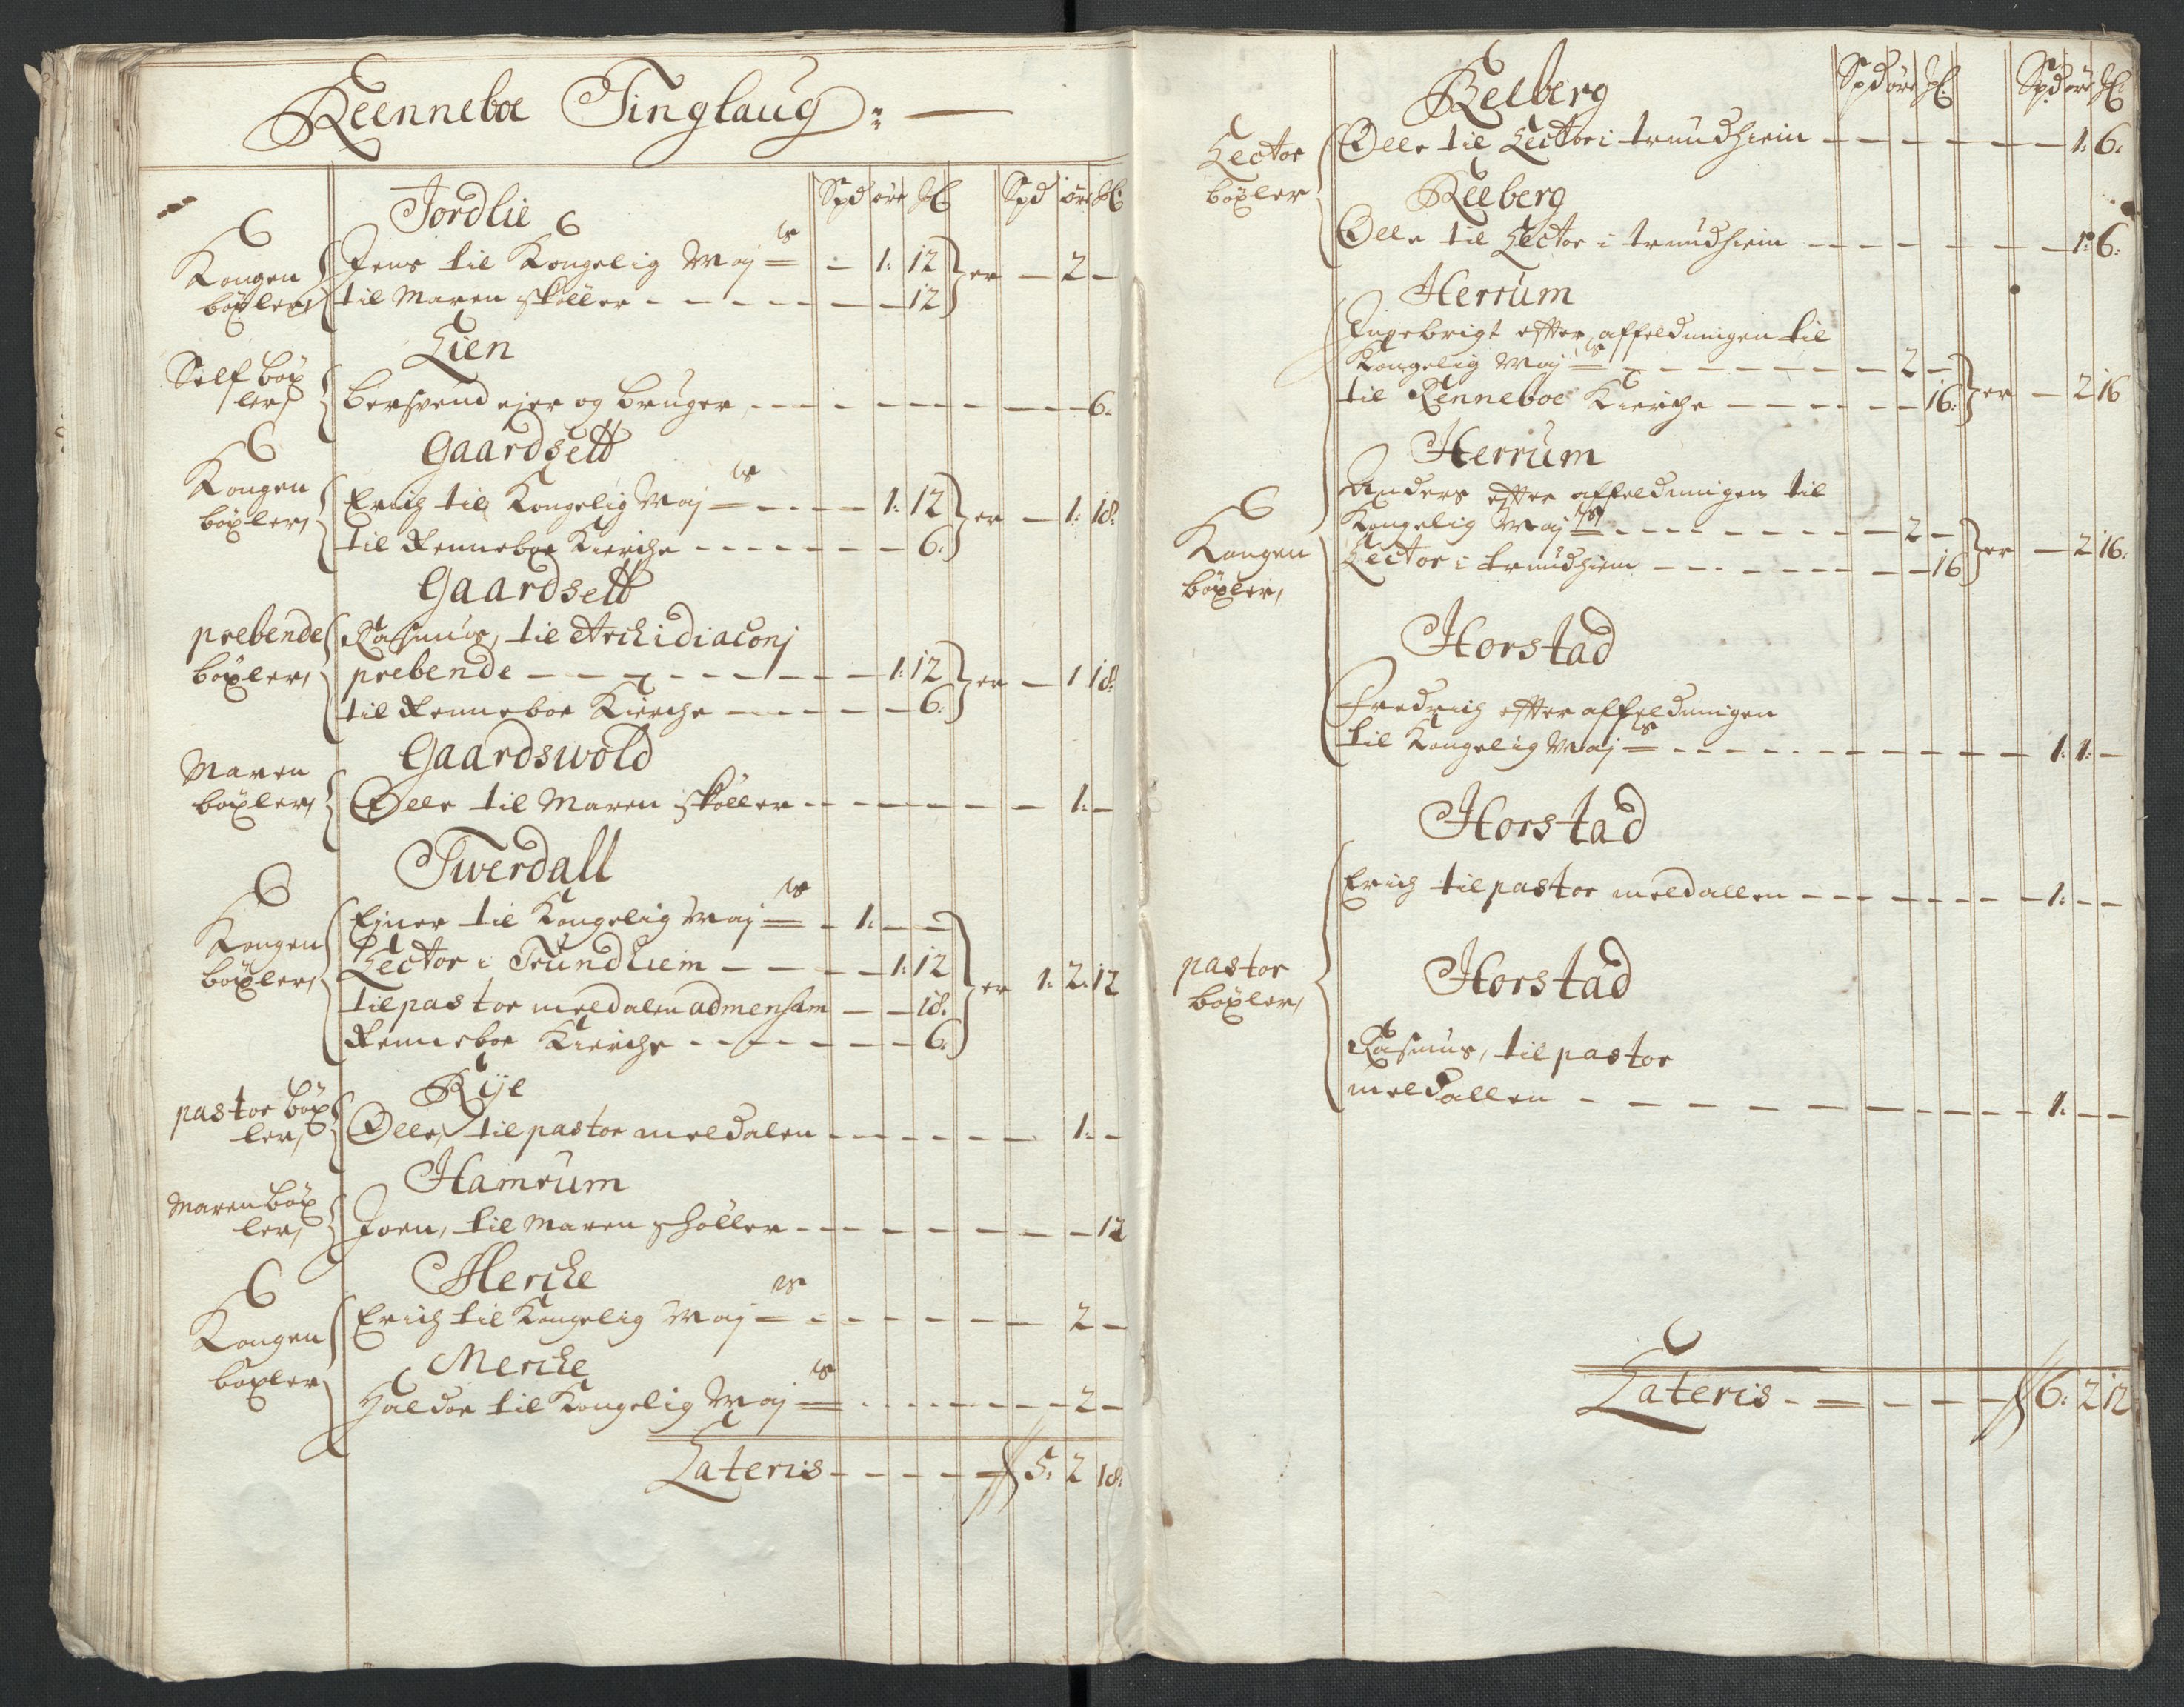 Reenneboe Tinglaug:
Spd øre Mkl Spd øre Mkl
Jordlie
Kongen bøxler
Jens til Kongelig Maj ts – 1: 12 er – 2 –
til Maren skøller – – – – – – – 12
Lien
Self bøx
ler
bersvend ejer og bruger – – – – – – – 6:
Gaardsett
Kongen bøxler
Erich til Kongelig Maj ts – – – 1: 12 er – 1: 18:
til Renneboe Kierche – – – – – – 6:
Gaardsett
prebende bøxler
Rasmus, til Archidiaconj
prebende – – – – – – – 1: 12 er – 1 18:
til Renneboe Kierche – – – – – 6:
Gaardswold
Maren bøxler
Olle til Maren skøller – – – – – – 1: –
Twerdall
Kongen bøxler
Ejner til Kongelig Maj ts – 1: – –
Lector i Trundhiem – – – – 1: 12 er 1: 2: 12
til pastor meldalen admensam – – 18:
Renneboe Kierche – – – – – – 6:
Rije
pastor bøx
ler
Olle, til pastor meldalen – – – – – – 1: –
Hamrum
Maren bøx
ler
Joen, til Maren skøller – – – – – – – 12
Herche
Kongen bøxler
Erich til Kongelig Maj ts – – – – – – 2 –
Merche
Haldor til Kongelig Maj ts – – – – – – 2 –
Lateris – – – – – 5: 2 18:
Spd øre Mkl Spd øre Mkl
Reeberg
Lector bøxler
Olle til Lector i trundhiem – – – – – – 1: 6:
Reeberg
Olle til Lector i trundhiem – – – – – – 1: 6:
Herrum
Ingebrigt efter affeldningen til
Kongelig Maj ts – – – – – – – 2 –
til Renneboe Kierche – – – – – 16: er – 2 16
Herrum
Kongen bøxler
Anders efter affeldningen til
Kongelig Maj ts – – – – – – – 2 – er – 2 16:
Lector i trundhiem – – – – – – – 16
Horstad
Fredrich efter affeldningen
til Kongelig Maj ts – – – – – – – – – 1: 1: –
Horstad
Erich til pastor meldallen – – – – – – – 1: – –
Horstad
pastor bøxler
Rasmus, til pastor
meldallen – – – – – – – – – – 1: – –
Lateris – – – – – 6: 2 12